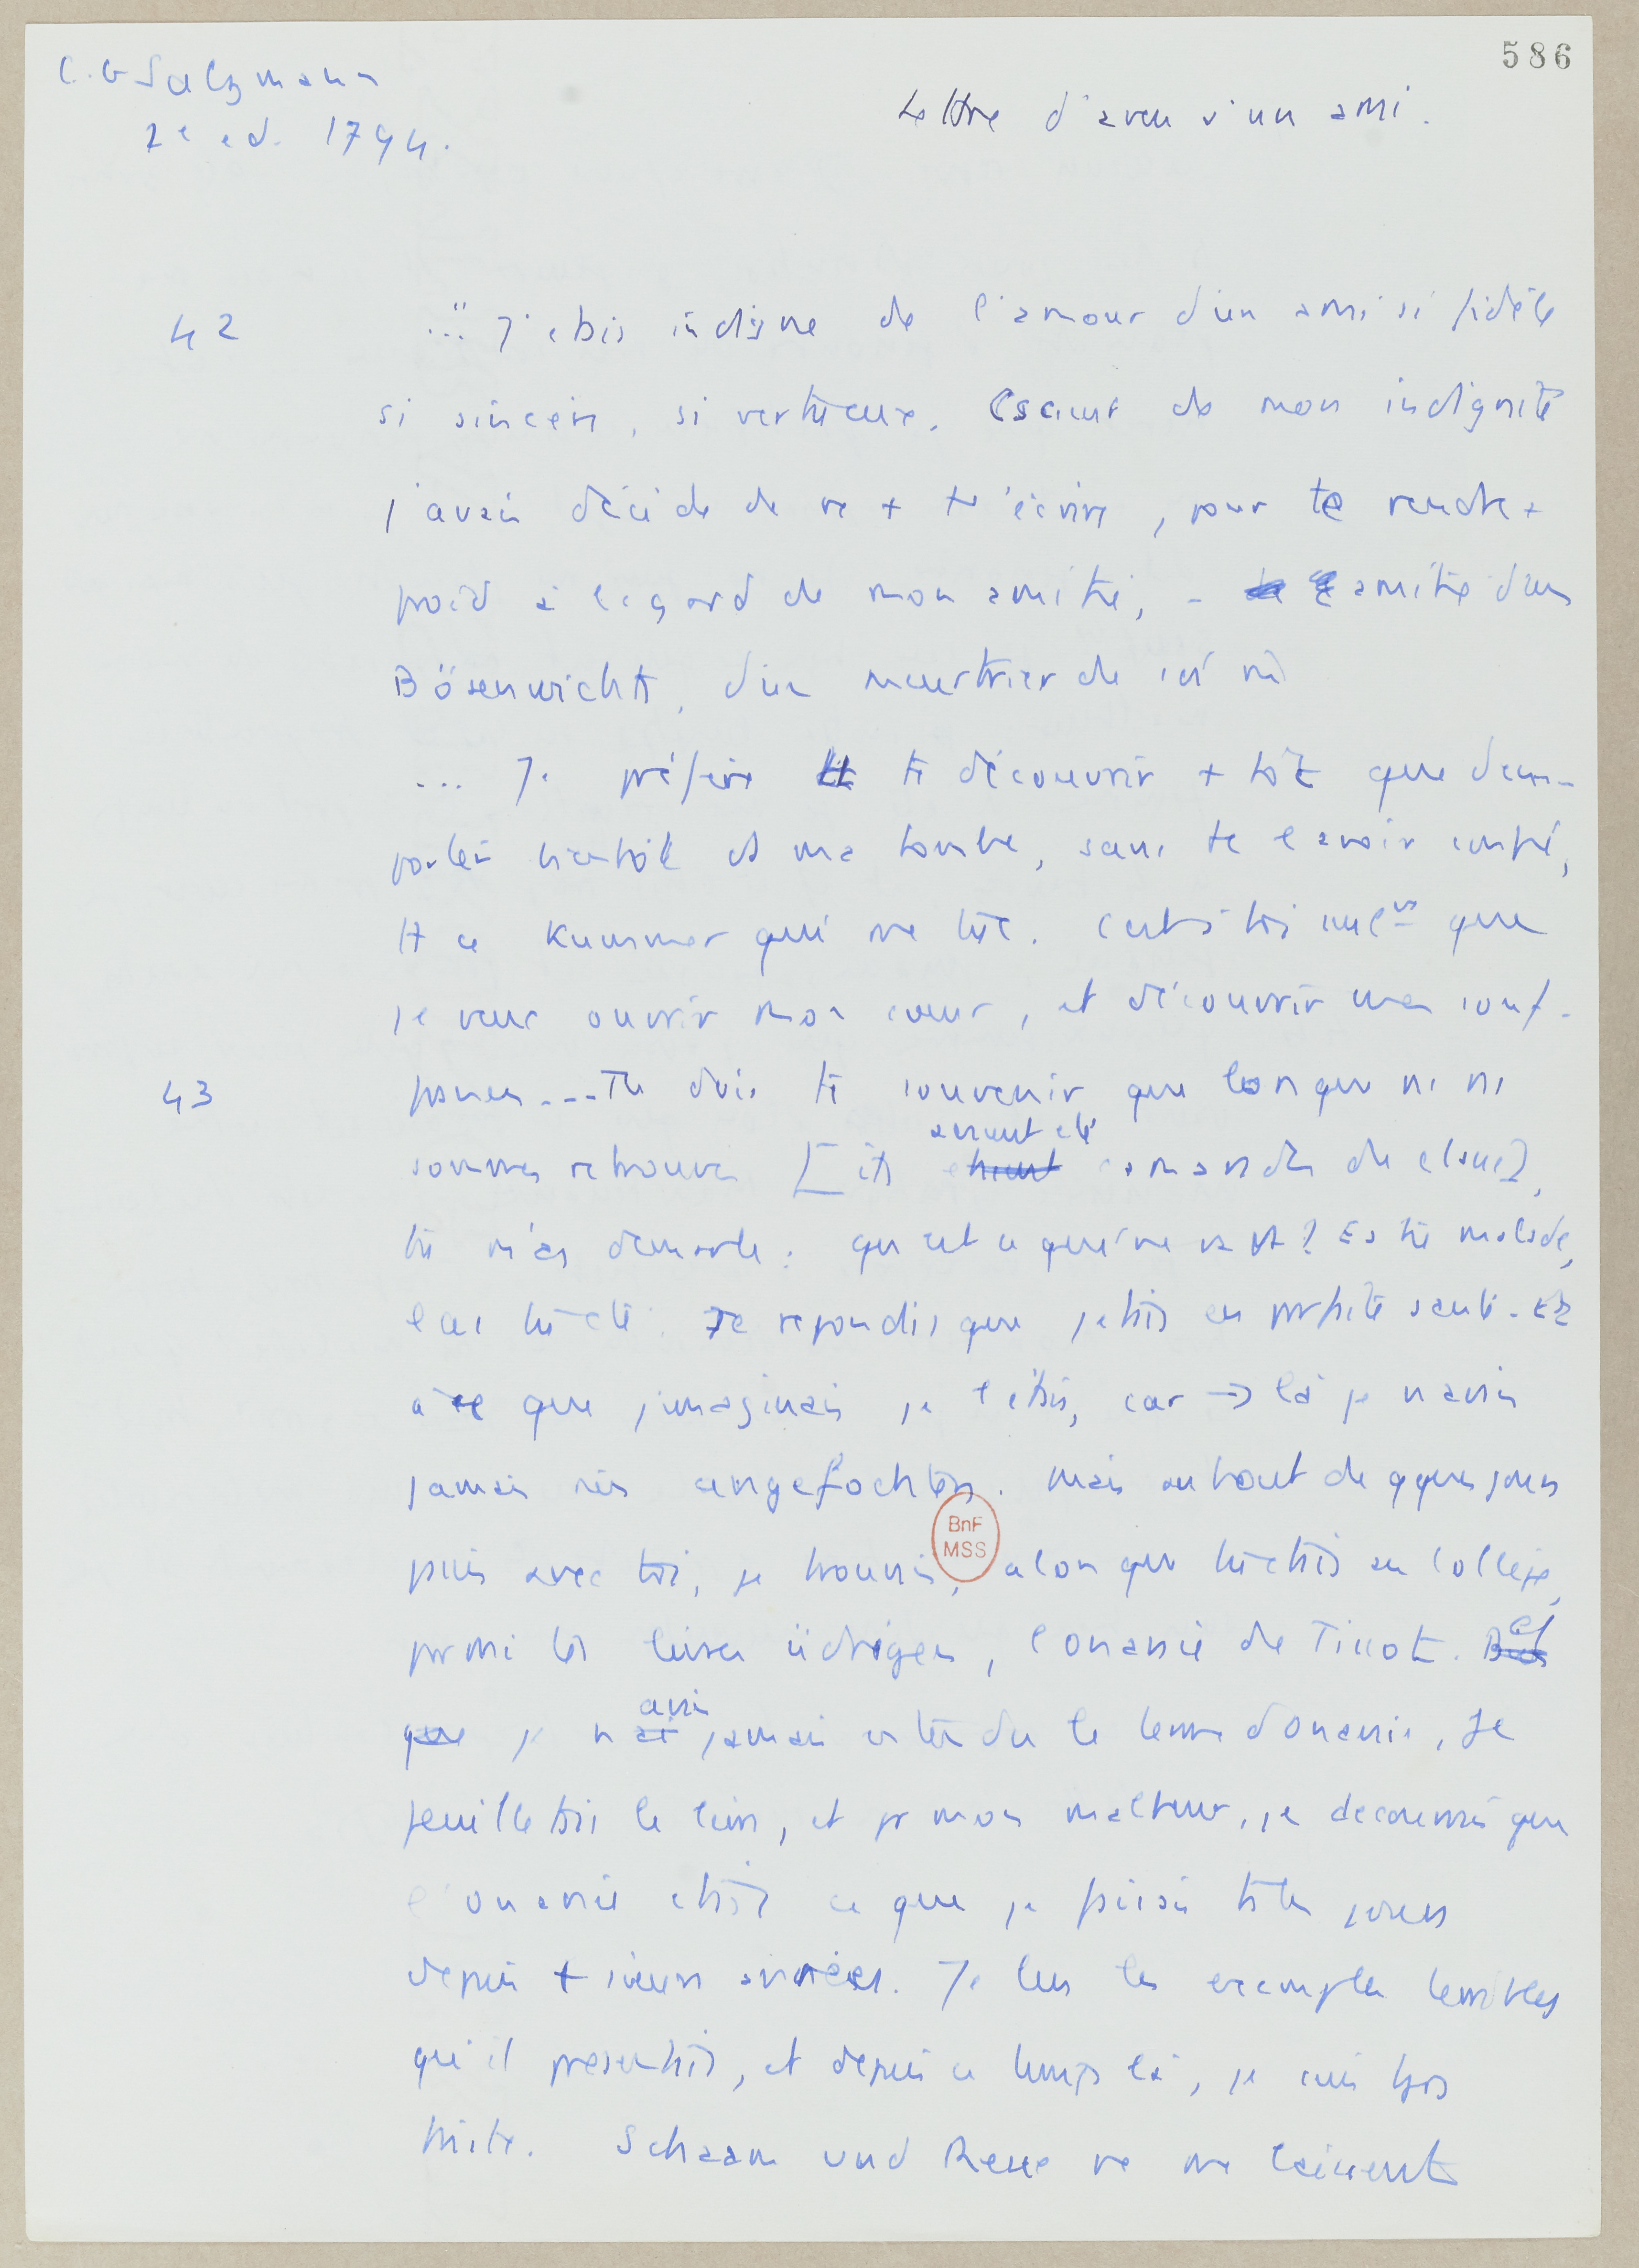 586
C. G Salzmann
2e ed. 1794.
Lettre d'aveu d'un ami.
42 ..." J'etais indigne de l'amour d'un ami si fidèle
si sincère, si vertueux. Csciant de mon indignité
j'avais décidé de ne + t'écrire, pour te rendre +
froid à l'egard de mon amitié, - amitié d'un
Bösenwichts, d'un meurtrier de soi m
... Je préfère te découvrir + tôt que d'em-
porter bientôt ds ma tombe, sans te l'avoir confié,
et ce Kummer qui me tue. C'est à toi seulmt que
je veux ouvrir mon cœur, et découvrir mes souf-
43 frances --- Tu dois te souvenir que lorsque ns ns
sommes retrouves [ils avaient été camarades de classe],
tu m'as demandé : qu'est ce qui ne va pas? Es tu malade,
l'as tu été. Je repondis que j'etais en parfaite santé. Et
à ce que j'imaginais je l'étais, car → là je n'avais
jamais rien angefochten. Mais au bout de qques jours
BnF
MSS
passés avec toi, je trouvais, alors que tu etais au college,
parmi tes livres üdrigen, l'onanie de Tissot. et
je n'avais jamais entendu le terme d'onanie, Je
feuilletais le livre, et pr mon malheur, je decouvris que
l'onanie etait ce que je faisais ts les jours
depuis + sieurs années. Je lus les exemples terribles
qu'il presentait, et depuis ce temps là, je suis tjrs
triste. Schaam und Reue ne me laissent